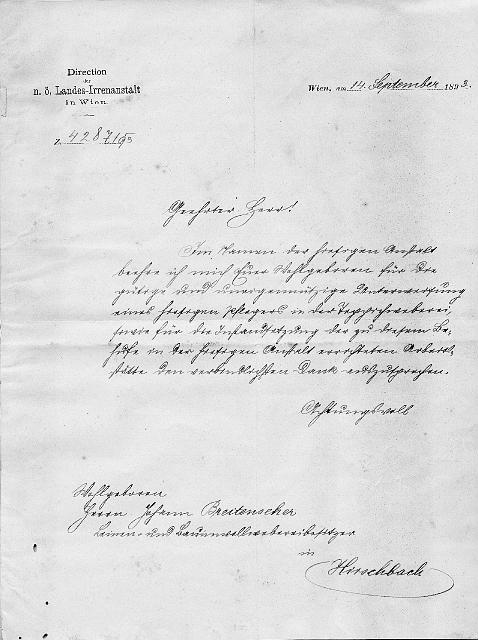 Direction
der
n. ö. Landes-Irrenanstalt
in Wien.
Wien, am 14. September 1893.
Z. 4287/93
Geehrter Herr!
Im Namen der hiesigen Anstalt
beehre ich mich Euer Wohlgeboren für die
gütige und uneigennützige Unterweisung
eines hiesigen Pflegers in der Teppichweberei,
sowie für die Instandsetzung der zu diesem Be-
hufe in der hiesigen Anstalt errichteten Arbeits-
stätte den verbindlichsten Dank auszusprechen.
Achtungsvoll
Wohlgeboren
Herrn Johann Breitenseher
Leinen- und Baumwollwebereibesitzer
in
Hirschbach